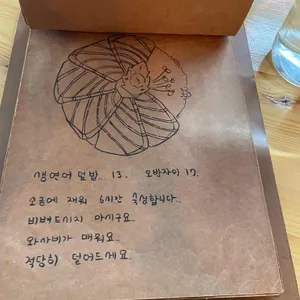 생연어덮밥. 13. 오반자이 17.
소금에 재워 6시간 숙성합니다.
비벼드시지 마시구요.
와사비가 매워요.
적당히 덜어드세요.